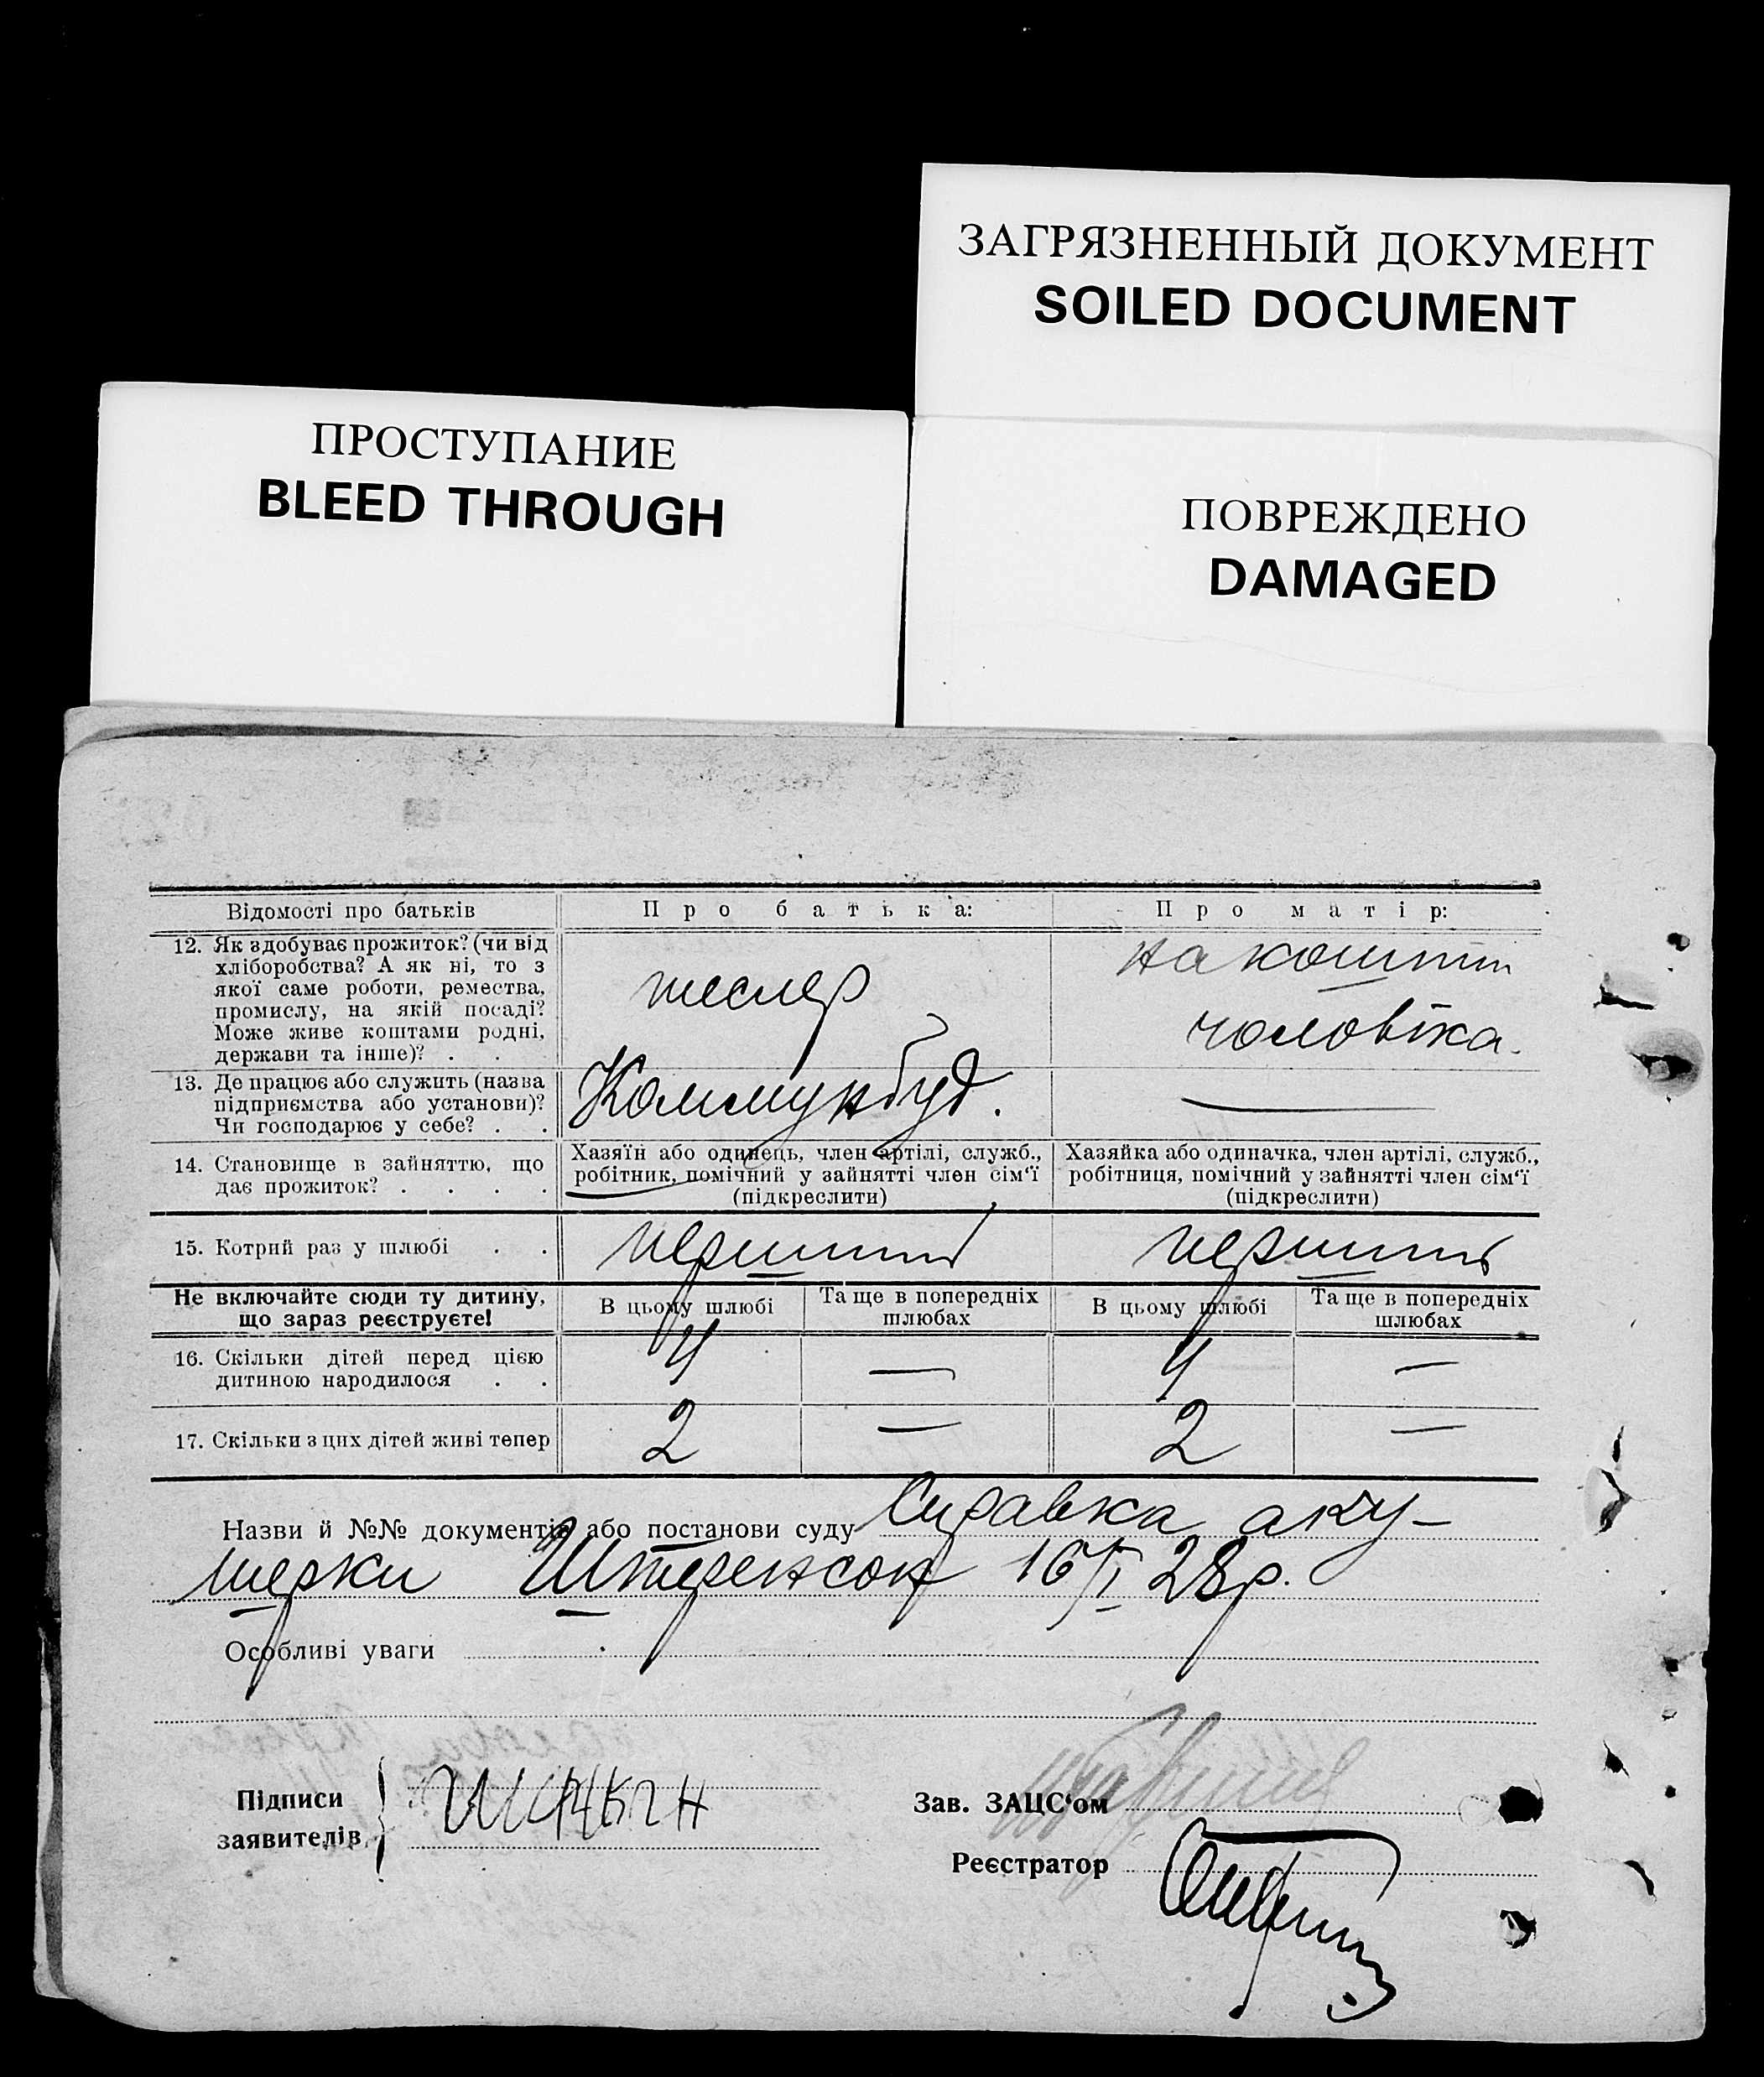 ЗАГРЯЗНЕННЫЙ ДОКУМЕНТ
SOILED DOCUMENT
ПРОСТУПАНИЕ
BLEED THROUGH
ПОВРЕЖДЕНО
DAMAGED
Відомості про батьків
Про батька:
Про матір:
12. Як здобуває прожиток? (чи від
хліборобства? А як ні, то з
якої саме роботи, ремества,
промислу, на якій посаді?
Може живе коштами родні,
держави та інше)? . .
тесляр
на кошти
чоловіка.
13. Де працює або служить (назва
підприємства або установи)?
Чи господарює у себе? . .
Коммунбуд.
—
14. Становище в зайняттю, що
дає прожиток? . . . .
Хазяїн або одинець, член артілі, служб.,
робітник, помічний у зайнятті член сім‘ї
(підкреслити)
Хазяйка або одиначка, член артілі, служб.,
робітниця, помічний у зайнятті член сім‘ї
(підкреслити)
15. Котрий раз у шлюбі . .
перший
перший
Не включайте сюди ту дитину,
що зараз реєструєте!
В цьому шлюбі
Та ще в попередніх
шлюбах
В цьому шлюбі
Та ще в попередніх
шлюбах
16. Скільки дітей перед цією
дитиною народилося . .
4 — 4 —
17. Скільки з цих дітей живі тепер
2 — 2 —
Назви й №№ документів або постанови суду Справка аку-
шерки Штеренсон 16/I 28р.
Особливі уваги
Підписи
заявителів
Зав. ЗАЦС‘ом
Реєстратор